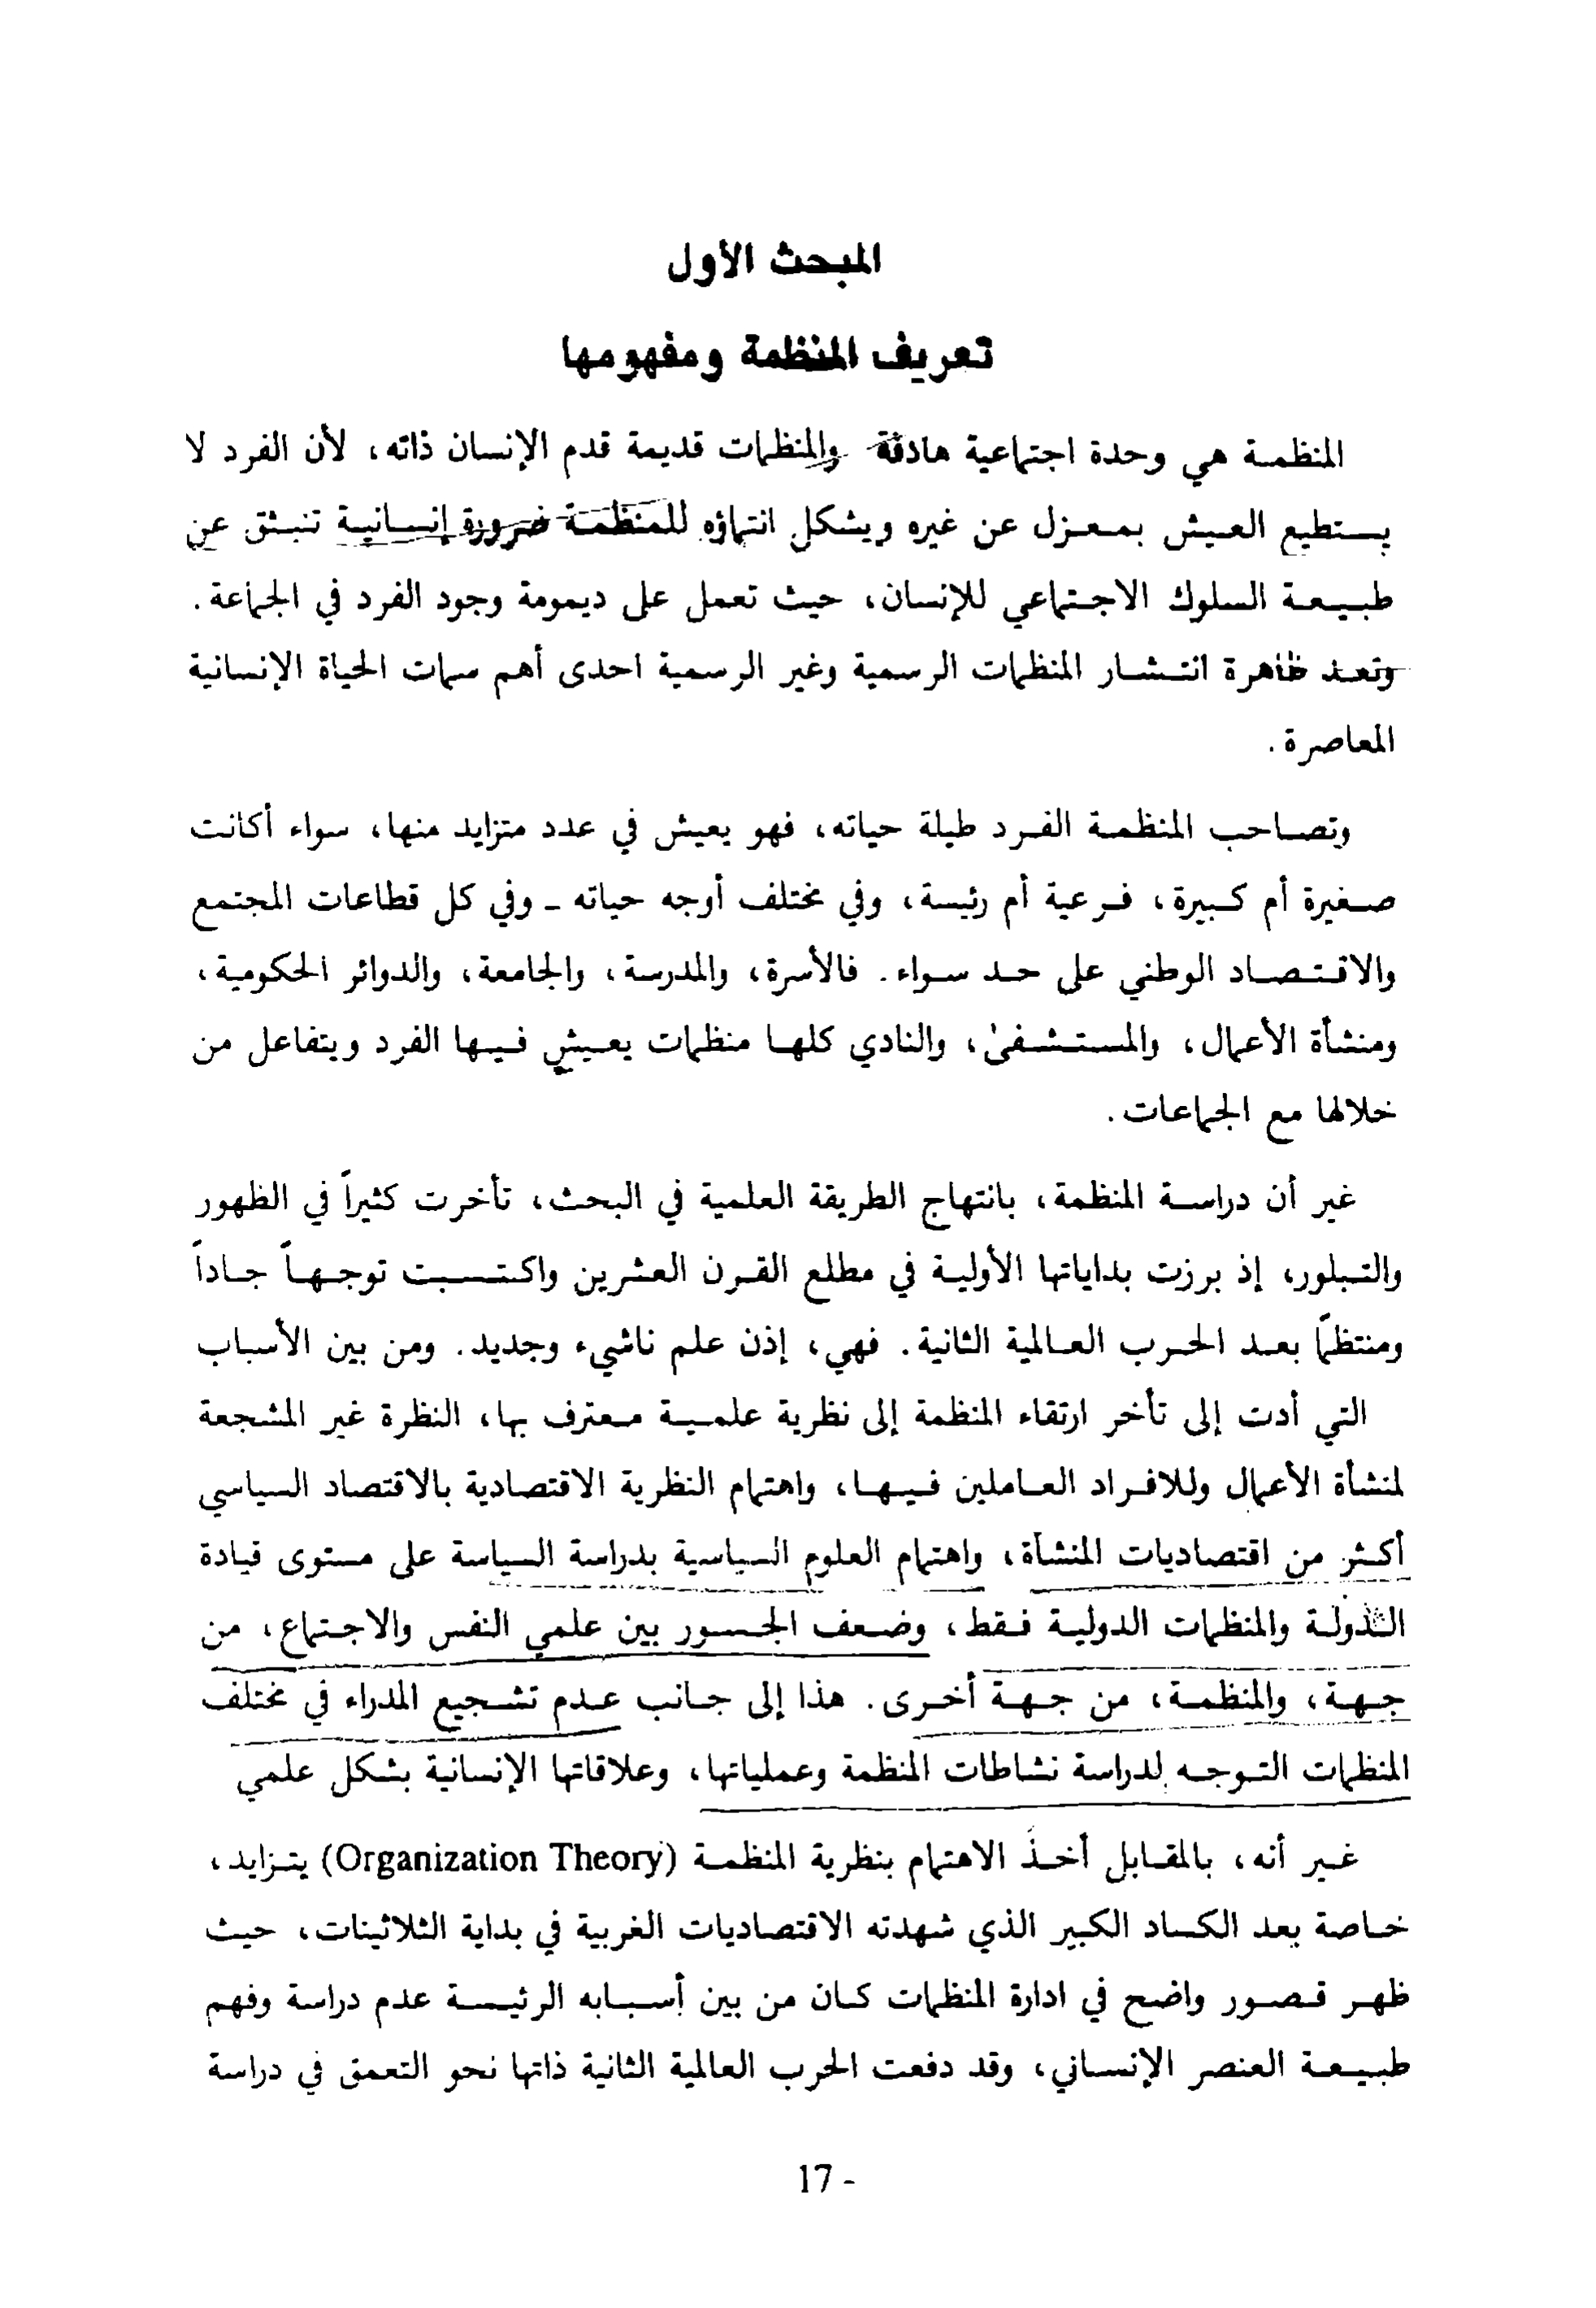 المبحث الأول
تعريف المنظمة ومفهومها
المنظمة هي وحدة اجتماعية هادفة والمنظمات قديمة قدم الإنسان ذاته، لأن الفرد لا
يستطيع العيش بمعزل عن غيره ويشكل انتماؤه للمنظمة ضرورة إنسانية تنبثق عن
طبيعة السلوك الاجتماعي للإنسان، حيث تعمل على ديمومة وجود الفرد في الجماعة.
وتعد ظاهرة انتشار المنظمات الرسمية وغير الرسمية احدى أهم سمات الحياة الإنسانية
المعاصرة.
وتصاحب المنظمة الفرد طيلة حياته، فهو يعيش في عدد متزايد منها، سواء أكانت
صغيرة أم كبيرة، فرعية أم رئيسة، وفي مختلف أوجه حياته - وفي كل قطاعات المجتمع
والاقتصاد الوطني على حد سواء. فالأسرة، والمدرسة، والجامعة، والدوائر الحكومية،
ومنشأة الأعمال، والمستشفىٰ، والنادي كلها منظمات يعيش فيها الفرد ويتفاعل من
خلالها مع الجماعات.
غير أن دراسة المنظمة، بانتهاج الطريقة العلمية في البحث، تأخرت كثيراً في الظهور
والتبلور، إذ برزت بداياتها الأولية في مطلع القرن العشرين واكتسبت توجهاً جاداً
ومنتظماً بعد الحرب العالمية الثانية. فهي، إذن علم ناشيء وجديد. ومن بين الأسباب
التي أدت إلى تأخر ارتقاء المنظمة إلى نظرية علمية معترف بها، النظرة غير المشجعة
لمنشأة الأعمال وللافراد العاملين فيها، واهتمام النظرية الاقتصادية بالاقتصاد السياسي
أكثر من اقتصاديات المنشأة، واهتمام العلوم السياسية بدراسة السياسة على مستوى قيادة
الدولة والمنظمات الدولية فقط، وضعف الجسور بين علمي النفس والاجتماع، من
جهة، والمنظمة، من جهة أخرى. هذا إلى جانب عدم تشجيع المدراء في مختلف
المنظمات التوجه لدراسة نشاطات المنظمة وعملياتها، وعلاقاتها الإنسانية بشكل علمي
غير أنه، بالمقابل أخذ الاهتمام بنظرية المنظمة (Organization Theory) يتزايد،
خاصة بعد الكساد الكبير الذي شهدته الاقتصاديات الغربية في بداية الثلاثينات، حيث
ظهر قصور واضح في ادارة المنظمات كان من بين أسبابه الرئيسة عدم دراسة وفهم
طبيعة العنصر الإنساني، وقد دفعت الحرب العالمية الثانية ذاتها نحو التعمق في دراسة
17 -